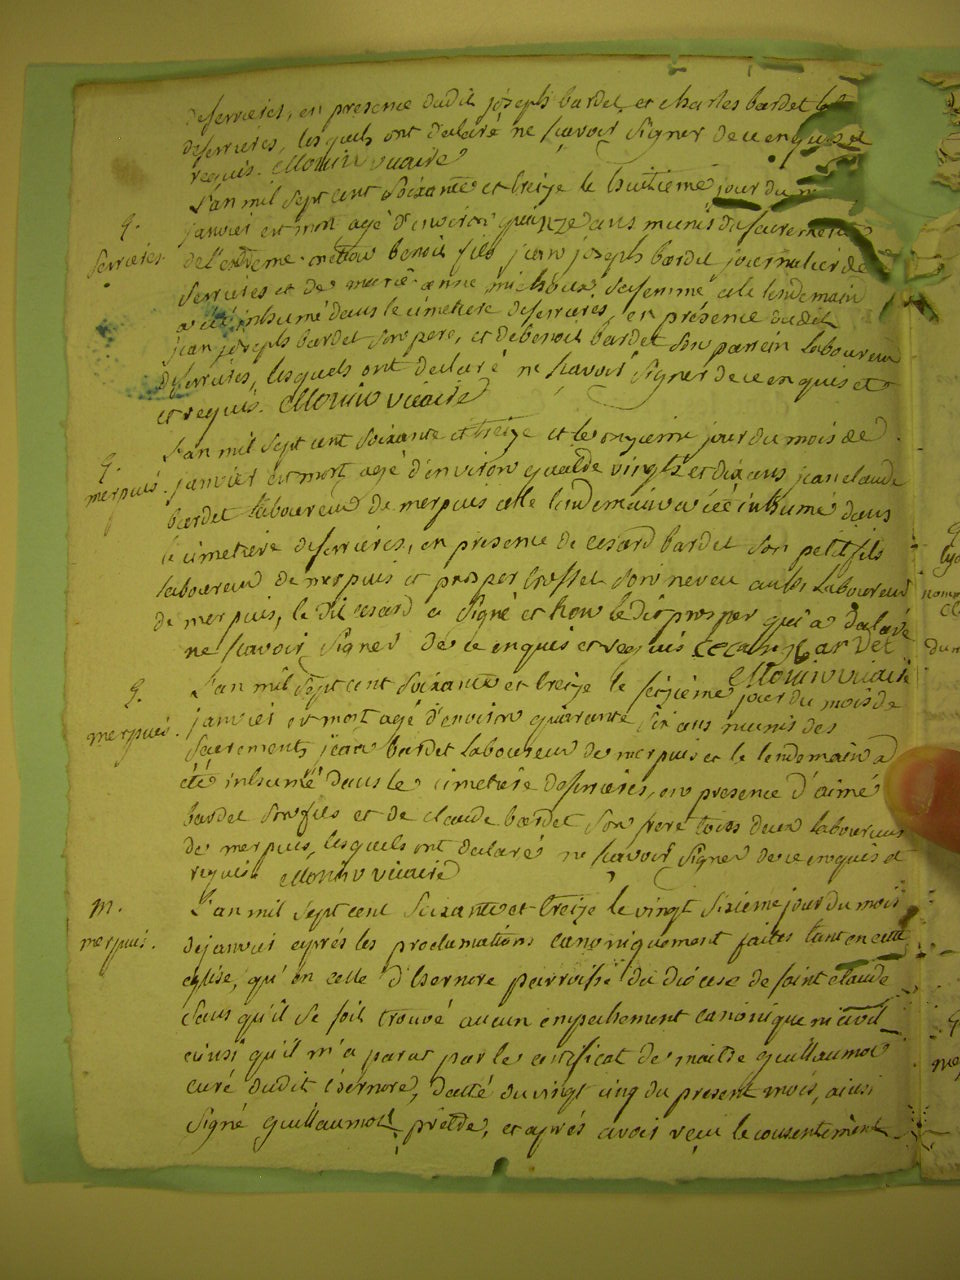 deserrieres, en presence dudit joseph bardet et charles bardet
deserrieres, lesquels ont declaré ne sçavoir signer de ce enquis et
requis. Monin vicaire
L'an mil sept cent soixante et treize le huitieme jour du
9.
janvier est mort agé d'environ quinze ans munis du sacrement
serrieres.
de l'extreme onction benoit fils jean joseph bardet journalier de
serrieres et de marie anne michoux sa femme et le lendemain
a été inhumé dans le cimetiere deserrieres, en présence dudit
jean joseph bardet son pere, et de benoit bardet son parrein laboureur
deserrieres, lesquels ont declaré ne sçavoir signer de ce enquis et
et requis. Monin vicaire
L'an mil sept cent soixante et treize et le onzieme jour du mois de
9.
merpuis.
janvier est mort agé d'environ quatre vingts et dix ans jean claude
bardet laboureur de merpuis et le lendemain a été inhumé dans
le cimetiere deserrieres, en presence de cesard bardet son petit fils
laboureur de merpuis et prosper son neveu aussi laboureur
de merpuis, le dit cesard a signé et non ledit prosper qui a declaré
ne sçavoir signer de ce enquis et requis cesar bardet
Monin vicaire
9.
L'an mil sept cent soixante et treize le seizieme jour du mois de
merpuis.
janvier est mort agé d'environ quarante six ans munis des
sacrements jean bardet laboureur de merpuis et le lendemain a
été inhumé dans le cimetiere deserrieres, en presence d'aimé
bardet son fils et de claude bardet son frere tous deux laboureurs
de merpuis, lesquels ont declarés ne sçavoir signer de ce enquis et
requis. Monin vicaire
m.
L'an mil sept cent soixante et treize le vingt sixieme jour du mois
merpuis.
de janvier aprés les proclamations canoniquement faites tant en cette
eglise, qu'en celle d'isernore parroisse du diocese de saint claude
sans qu'il se soit trouvé aucun empechement canonique ni civil
ainsi qu'il m'a parut par le certificat de maitre guillaumot
curé dudit isernore, datté du vingt cinq du present mois, ainsi
signé guillaumot, prêtre, et aprés avoir reçu le consentement